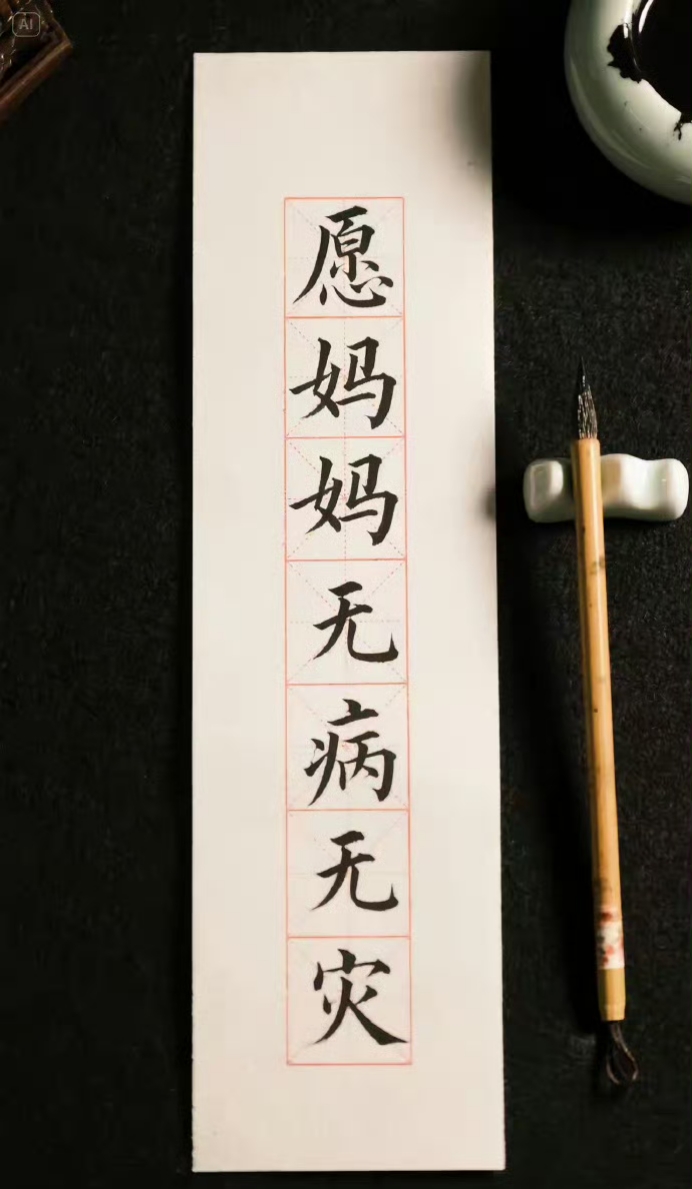 AI
愿妈妈无病无灾